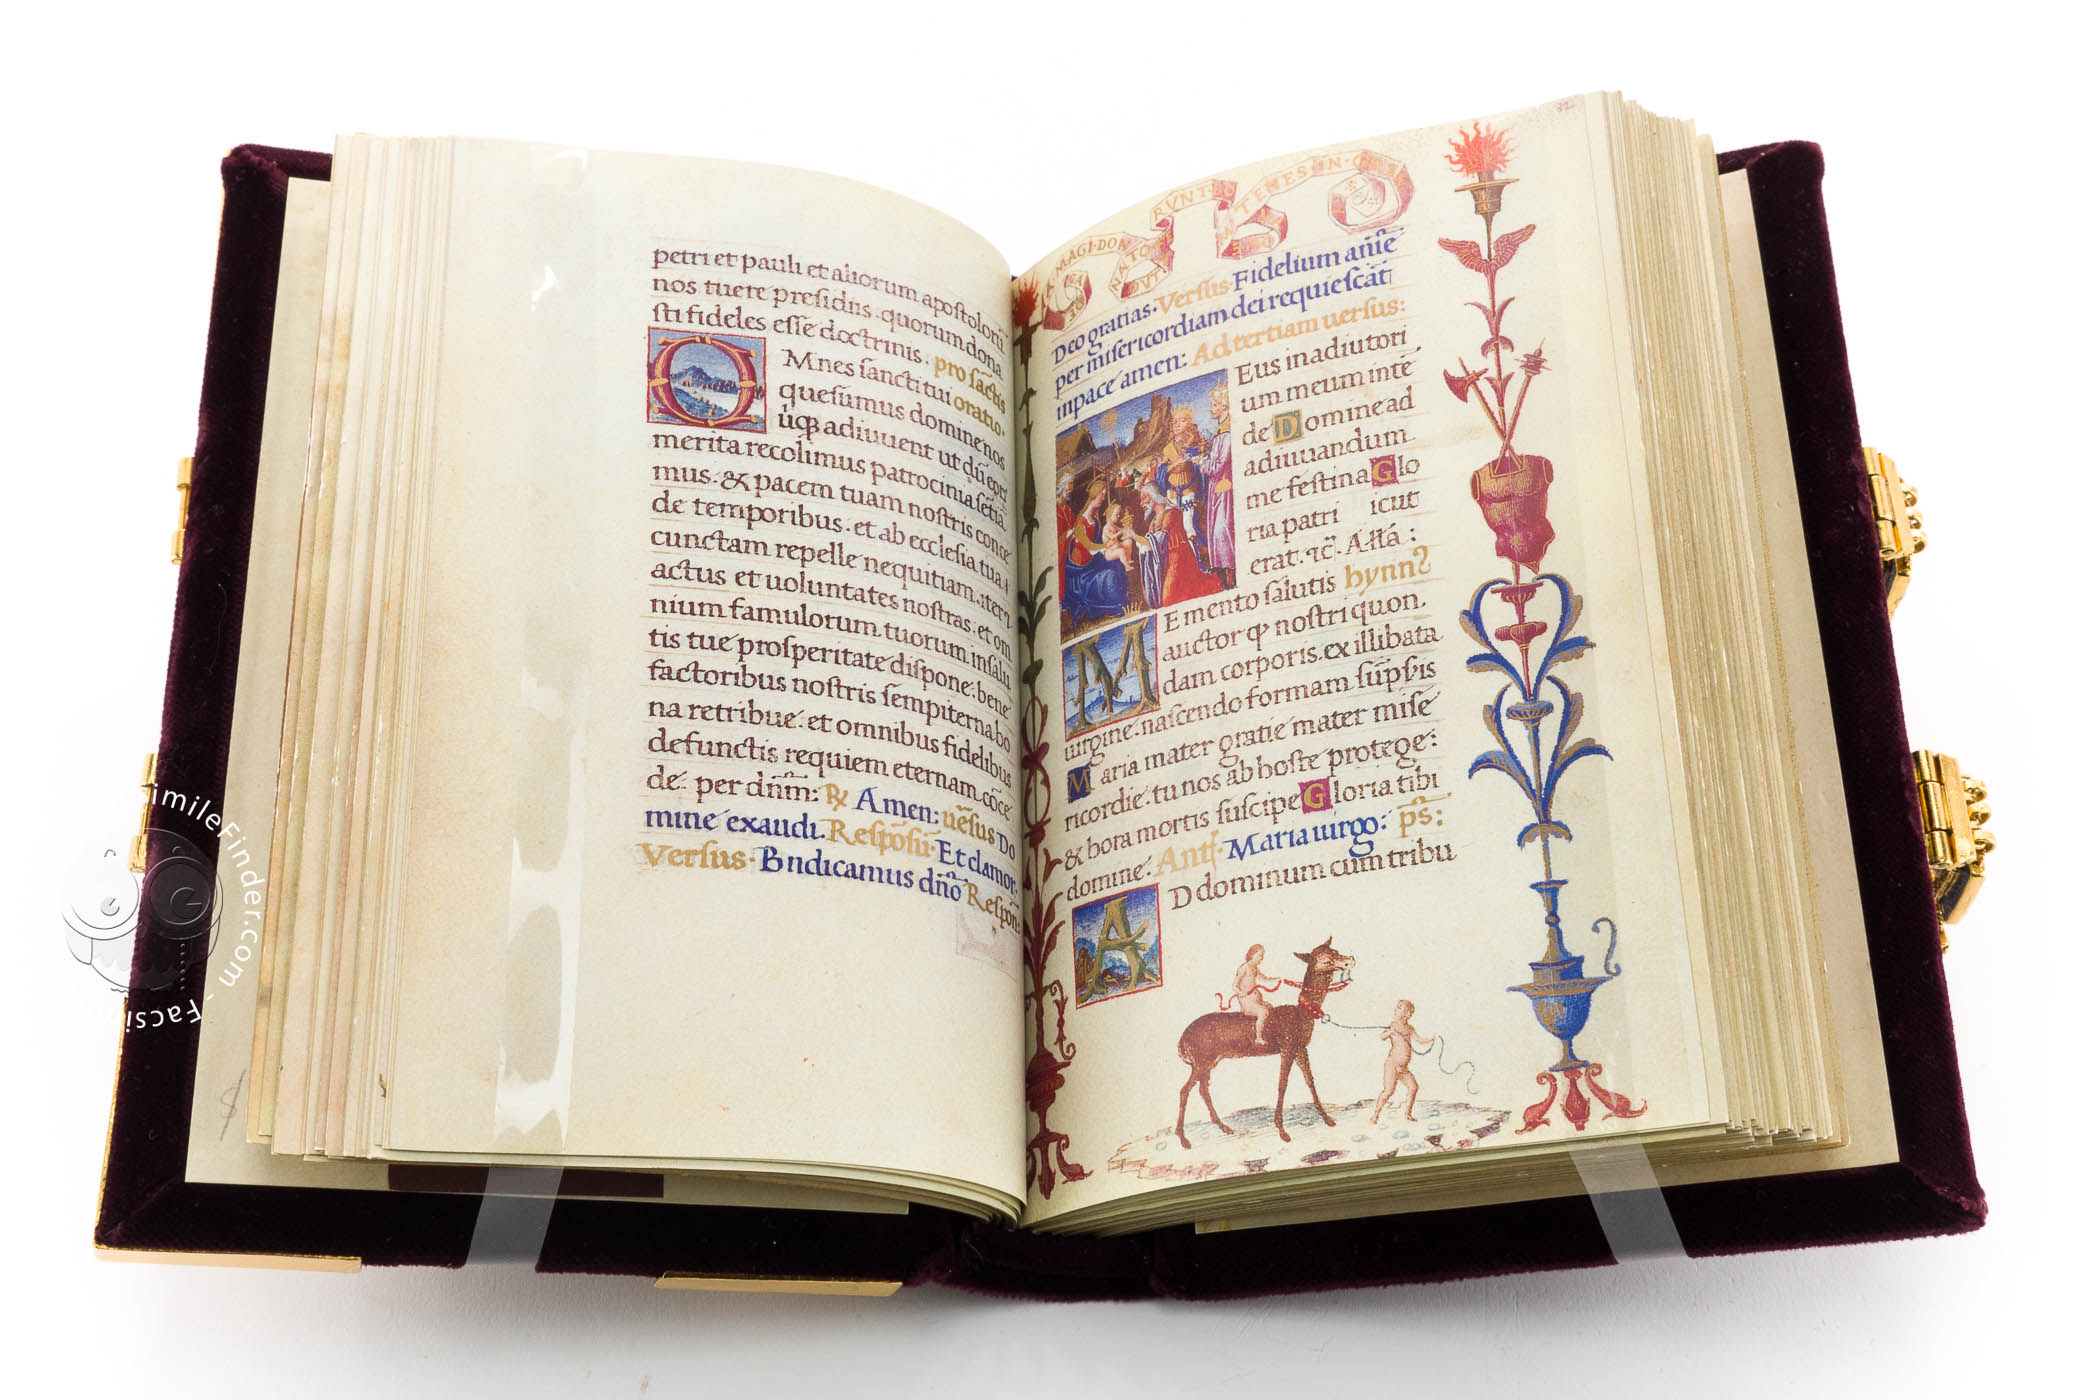 petri et pauli et aliorum apostolorū
nos tuere presidiis. quorum dona
sti fideles esse doctrinis. pro sāctis
OMnes sancti tui oratio.
quesumus domine nos
ubiqꝫ adiuuent ut dū eoꝝ
merita recolimus patrocinia sētia
mus. & pacem tuam nostris conce
de temporibus. et ab ecclesia tua
cunctam repelle nequitiam. iter
actus et uoluntates nostras. et om
nium famulorum tuorum in salu
tis tue prosperitate dispone: bene
factoribus nostris sempiterna bo
na retribue. et omnibus fidelibus
defunctis requiem eternam cōce
de. per dn̄m: ℟ Amen: uēsus Do
mine exaudi. Respōsū. Et clamor.
Versus. Bn̄dicamus dn̄o Respōn:
32
MAGI DON RVNT
Deo gratias. Versus. Fidelium anīe
per misericordiam dei requiescāt
in pace amen: Ad tertiam uersus:
Eus in adiutori
um meum inte
de Domine ad
adiuuandum
me festina Glo
ria patri icut
erat. ⁊c̄. Alła:
Emento salutis hynnꝰ
Mauctor qđ nostri quon.
dam corporis. ex illibata
uirgine. nascendo formam sūpsīs
Maria mater gratie mater mise
ricordie. tu nos ab hoste protege:
& hora mortis suscipe Gloria tibi
domine. Antƒ. Maria uirgo: p̄s:
AD dominum cum tribu
FacsimileFinder.com - Facsimi